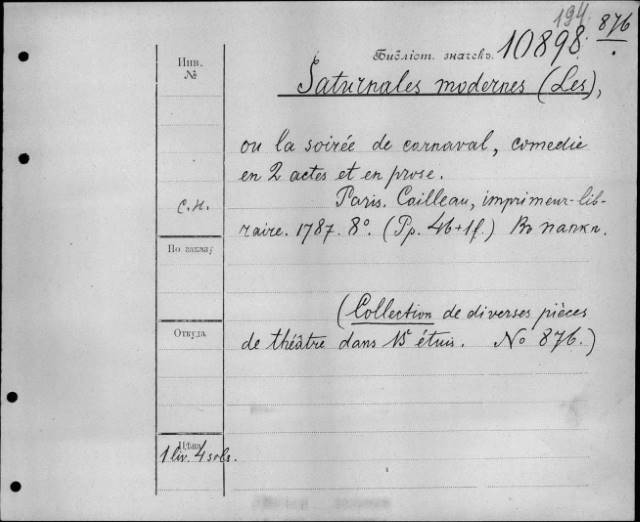 194. 876
Библіот. значекъ. 10898.
Инв. №
Saturnales modernes (Les),
ou la soirée de carnaval, comedie
en 2 actes et en prose.
С.Н. Paris. Cailleau, imprimeur-lib-
raire. 1787. 8°. (Pp. 46+1f.) Въ папкѣ.
По заказу
(Collection de diverses pièces
Откуда de théâtre dans 15 étuis. No 876.)
Цѣна
1 liv. 4 sols.